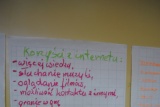 Korzyści z internetu:
- więcej wiedzy,
- słuchanie muzyki,
- oglądanie filmów,
- możliwość kontaktu z innymi,